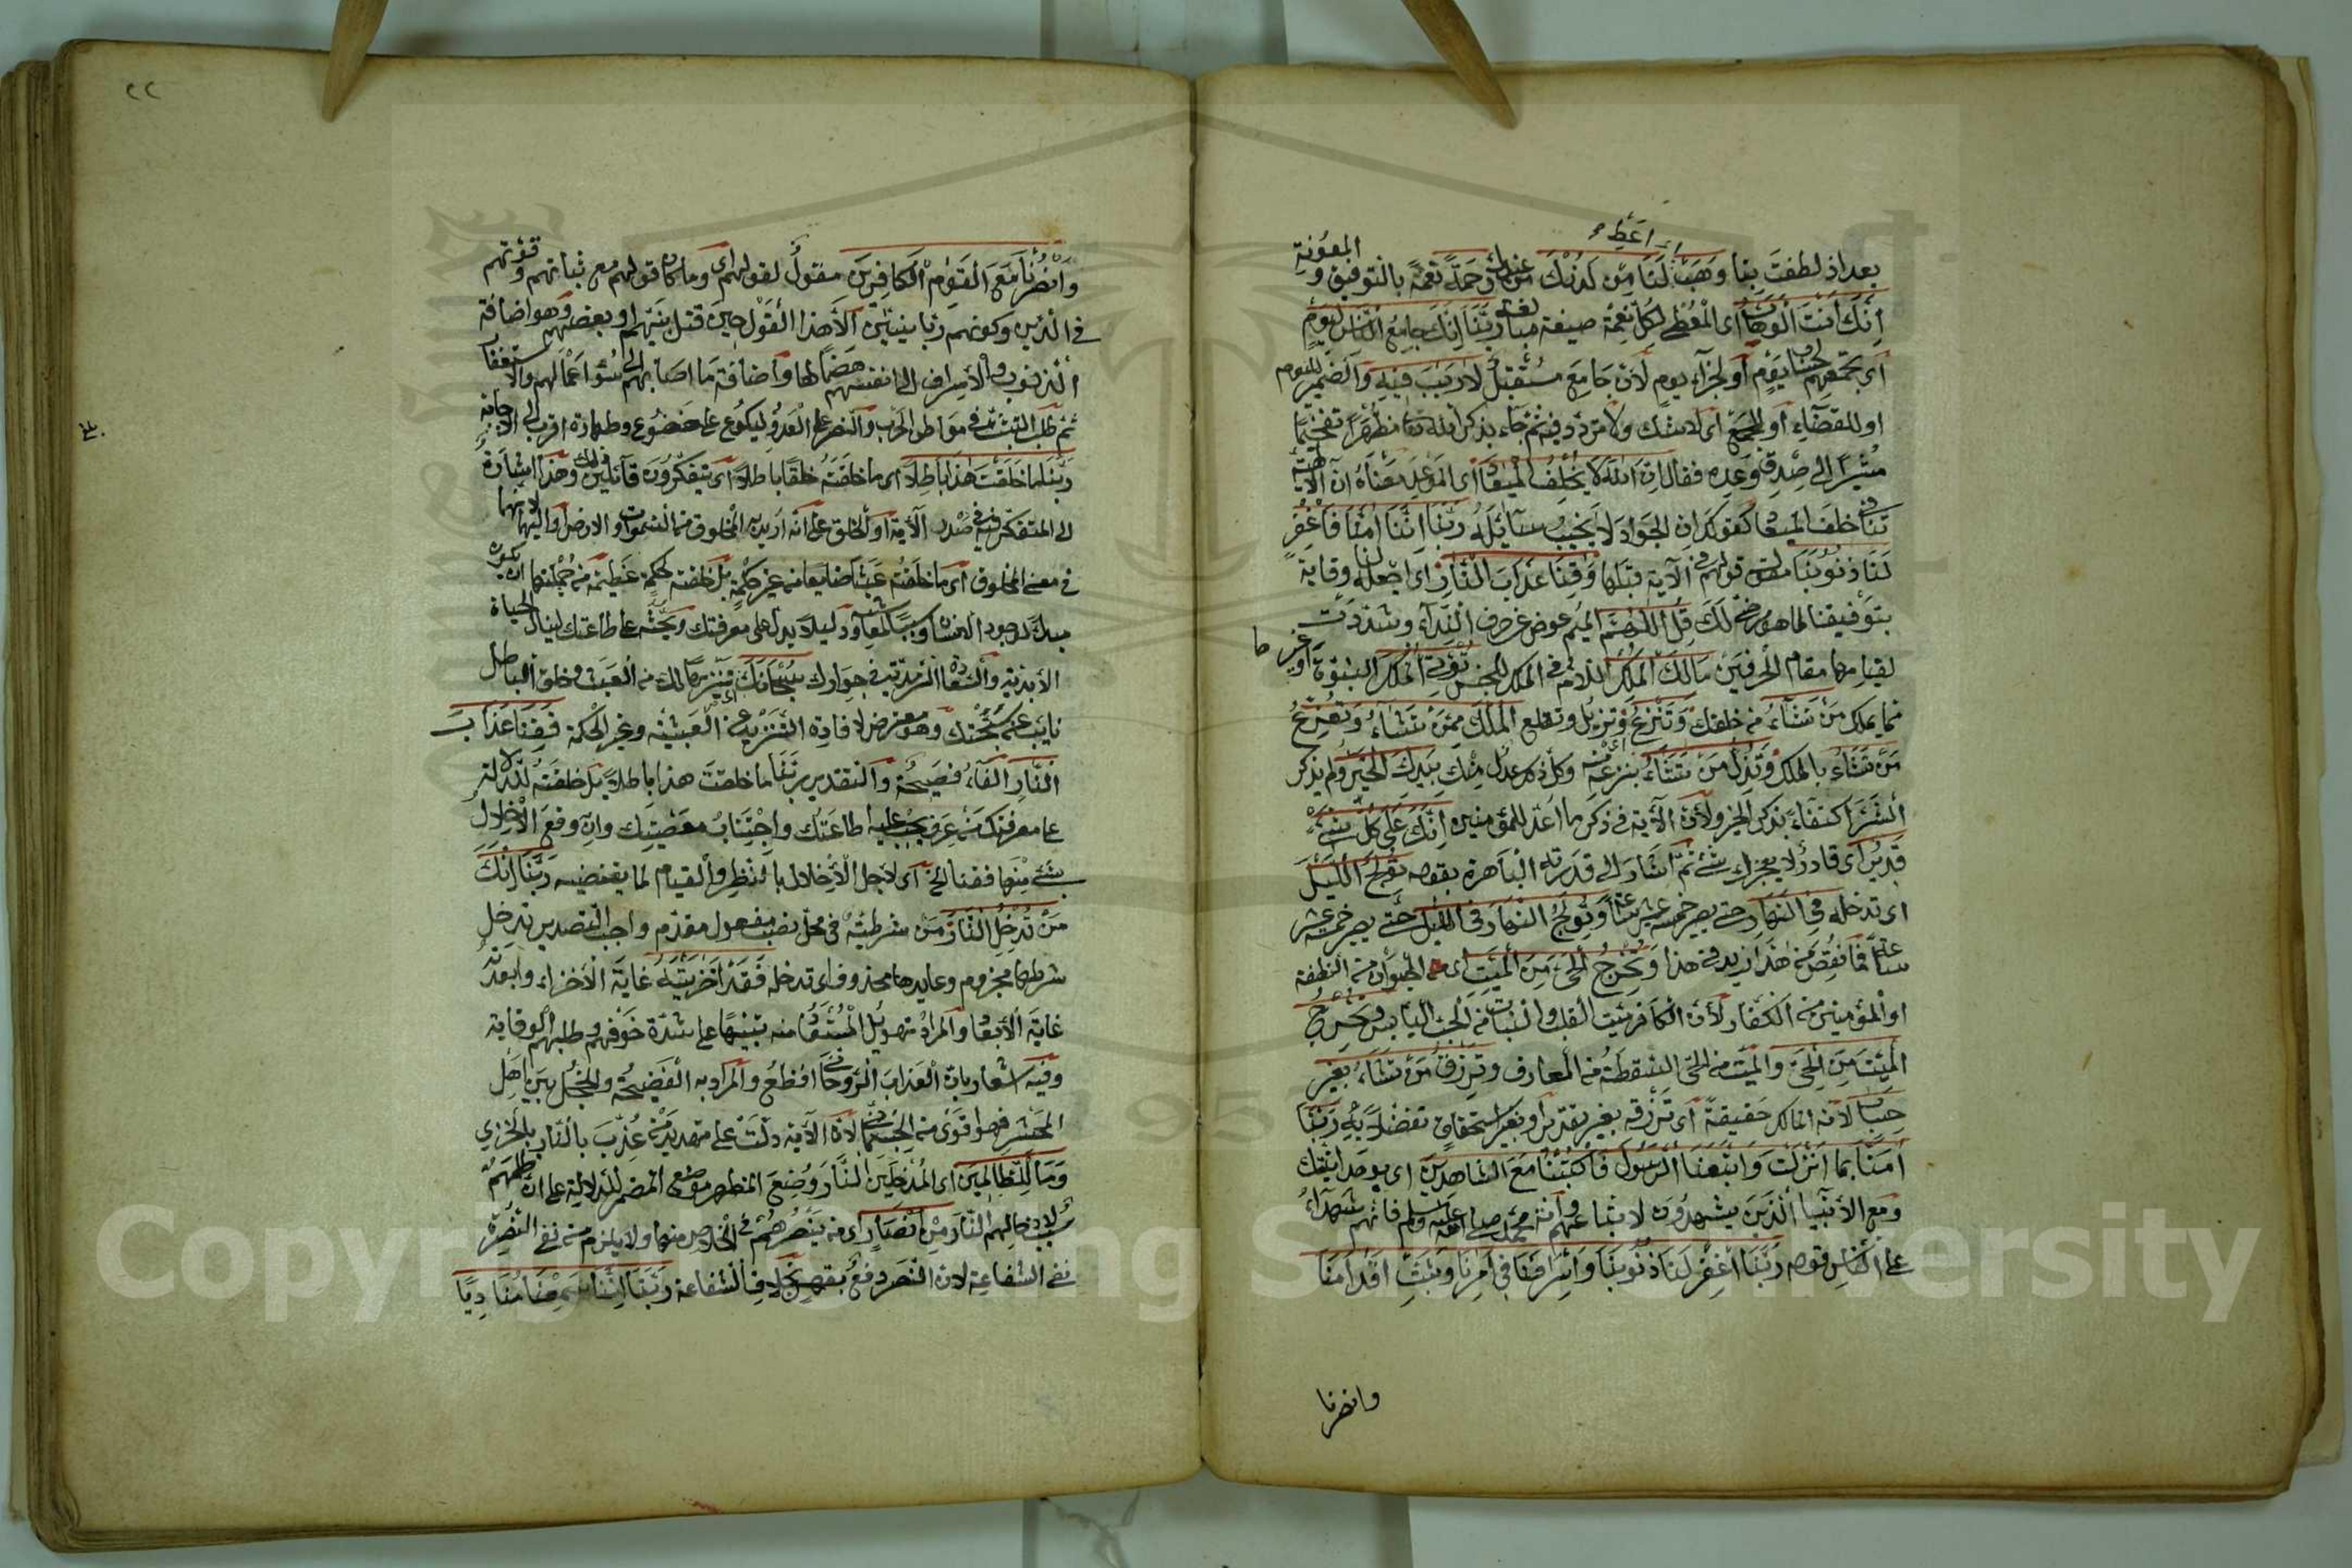 أعط
بعد اذ لطفت بنا وهب لنا من لدنك من عندك رحمة نعمة بالتوفيق و المعونة
انك انت الوهاب اى المعطى لكل نعمة صيغة مبالغة ربنا انك جامع الناس ليوم
اى تجمعهم لحساب يوم أو لجزاء يوم لان جامع مستقبل لا ريب فيه والضمير لليوم
او للقضاء أو للجمع اى لا شك ولا تردد فيه ثم جاء بذكر الله تعا مظهرا تفخيما
مشيرا الى صدق وعده فقال ان الله لا يخلف الميعاد اى الموعد معناه ان الالهية
تنافى خلف الميعاد كقولك ان الجواد لا يخيب سائله ربنا اننا امنا فاغفر
لنا ذنوبنا قولهم فى الآية قبلها وقنا عذاب النار اى اجعل لنا وقاية
بتوفيقنا لما هو رضى لك قل اللهم الميم عوض عن حرف النداء وشددت
لقيامها مقام الحرفين مالك الملك اللام فى الملك للجنس تؤتى الملك النبوة أو غيرها
مما يملك من تشاء من خلقك وتنزع وتزيل وتقلع الملك ممن تشاء وتعز
من تشاء بالملك وتذل من تشاء بنزعه منه وكل ذلك عدل منك بيدك الخير ولم يذكر
الشر اكتفاء بذكر الخير ولأن الآية فى ذكر ما اعد للمؤمنين انك على كل شئ
قدير اى قادر لا يعجزك شئ ثم اشار الى قدرته الباهرة بقوله تولج الليل
اى تدخله فى النهار حتى يصير خمسة عشر ساعة وتولج النهار فى الليل حتى يصير خمسة عشر
ساعة فما نقص من هذا زيد فى هذا وتخرج الحى من الميت اى الحيوان من النطفة
او المؤمنين من الكفار لأن الكافر ميت القلب والنبات من الحب اليابس وتخرج
الميت من الحى والميت من الحى السقطة من المعارف وترزق من تشاء بغير
حساب لانه المالك حقيقة اى ترزقه بغير تقدير او بغير استحقاق تفضلا به ربنا
امنا بما انزلت واتبعنا الرسول فاكتبنا مع الشاهدين اى بوحدانيتك
ومع الأنبيا الذين يشهدون لاتباعهم وامة محمد صلى الله عليه وسلم فانهم شهداء
على الناس قوله ربنا اغفر لنا ذنوبنا واسرافنا فى امرنا وثبت اقدامنا
وانصرنا
٢٢
وانصرنا على القوم الكافرين مقول لقولهم اى وما كان قولهم مع ثباتهم وقوتهم
فى الدين وكونهم ربانيين الا هذا القول حين قتل نبيهم او بعضهم وهو اضافة
الذنوب والاسراف الى انفسهم هضما لها واضافة ما اصابهم الى سوء اعمالهم والاستغفار
ثم طلب التثبت فى مواطن الحرب والنصر على العدو ليكون عن خضوع وطهارة اقرب الى الاجابة
ربنا ما خلقت هذا باطلا اى ما خلقته خلقا باطلا اى يتفكرون قائلين ذلك وهذا اشارة
الى المتفكر فيه فى صدر الآية او الخلق على انه اريد به المخلوق من السموات والارض او اليهما لانهما
فى معنى المخلوق اى ما خلقته عبثا ضايعا من غير حكمة بل خلقته لحكمة عظيمة من جملتها ان يكون
مبدأ لوجود الانسان وسببا لمعاشه ودليلا يدل على معرفتك ويحثه على طاعتك لينال الحياة
الأبدية والسعادة السرمدية فى جوارك سبحانك تنزيها لك من العبث وخلق الباطل
نايب عن سبحتك وهو معترض لافادة التنزيه من العبثية وغير الحكمة فقنا عذاب
النار الفاء فصيحة والتقدير ربنا ما خلقت هذا باطلا بل خلقته للدلالة
على معرفتك من عرف يجب عليه اطاعتك واجتناب معصيتك وان وقع الاخلال
بشئ منها فقنا الخ اى لاجل الاخلال بالنظر والقيام لما يقتضيه ربنا انك
من تدخل النار من شرطية فى محل نصب مفعول مقدم واجب التصدير تدخل
شرطها مجزوم وعايدها محذوف اى تدخله فقد اخزيته غاية الأخزاء وابعدته
غاية الأبعاد والمراد تهويل المستعاذ منه تنبيها على شدة خوفهم وطلبهم الوقاية
وفيه اشعار بان العذاب الروحانى افظع والمراد به الفضيحة والخجل بين اهل
المحشر فهو اقوى من الجسمانى لان الآية دلت على تهديد من عذب بالنار بالخزى
وما للظالمين اى المدخلين النار وضع المظهر موضع المضمر للدلالة على ان ظلمهم
سبب لادخالهم النار من انصار اى من ينصرهم فى الخلاص منها ولا يلزم من نفى النصرة
نفى الشفاعة لان النصر دفع بقهر بخلاف الشفاعة ربنا اننا سمعنا مناديا